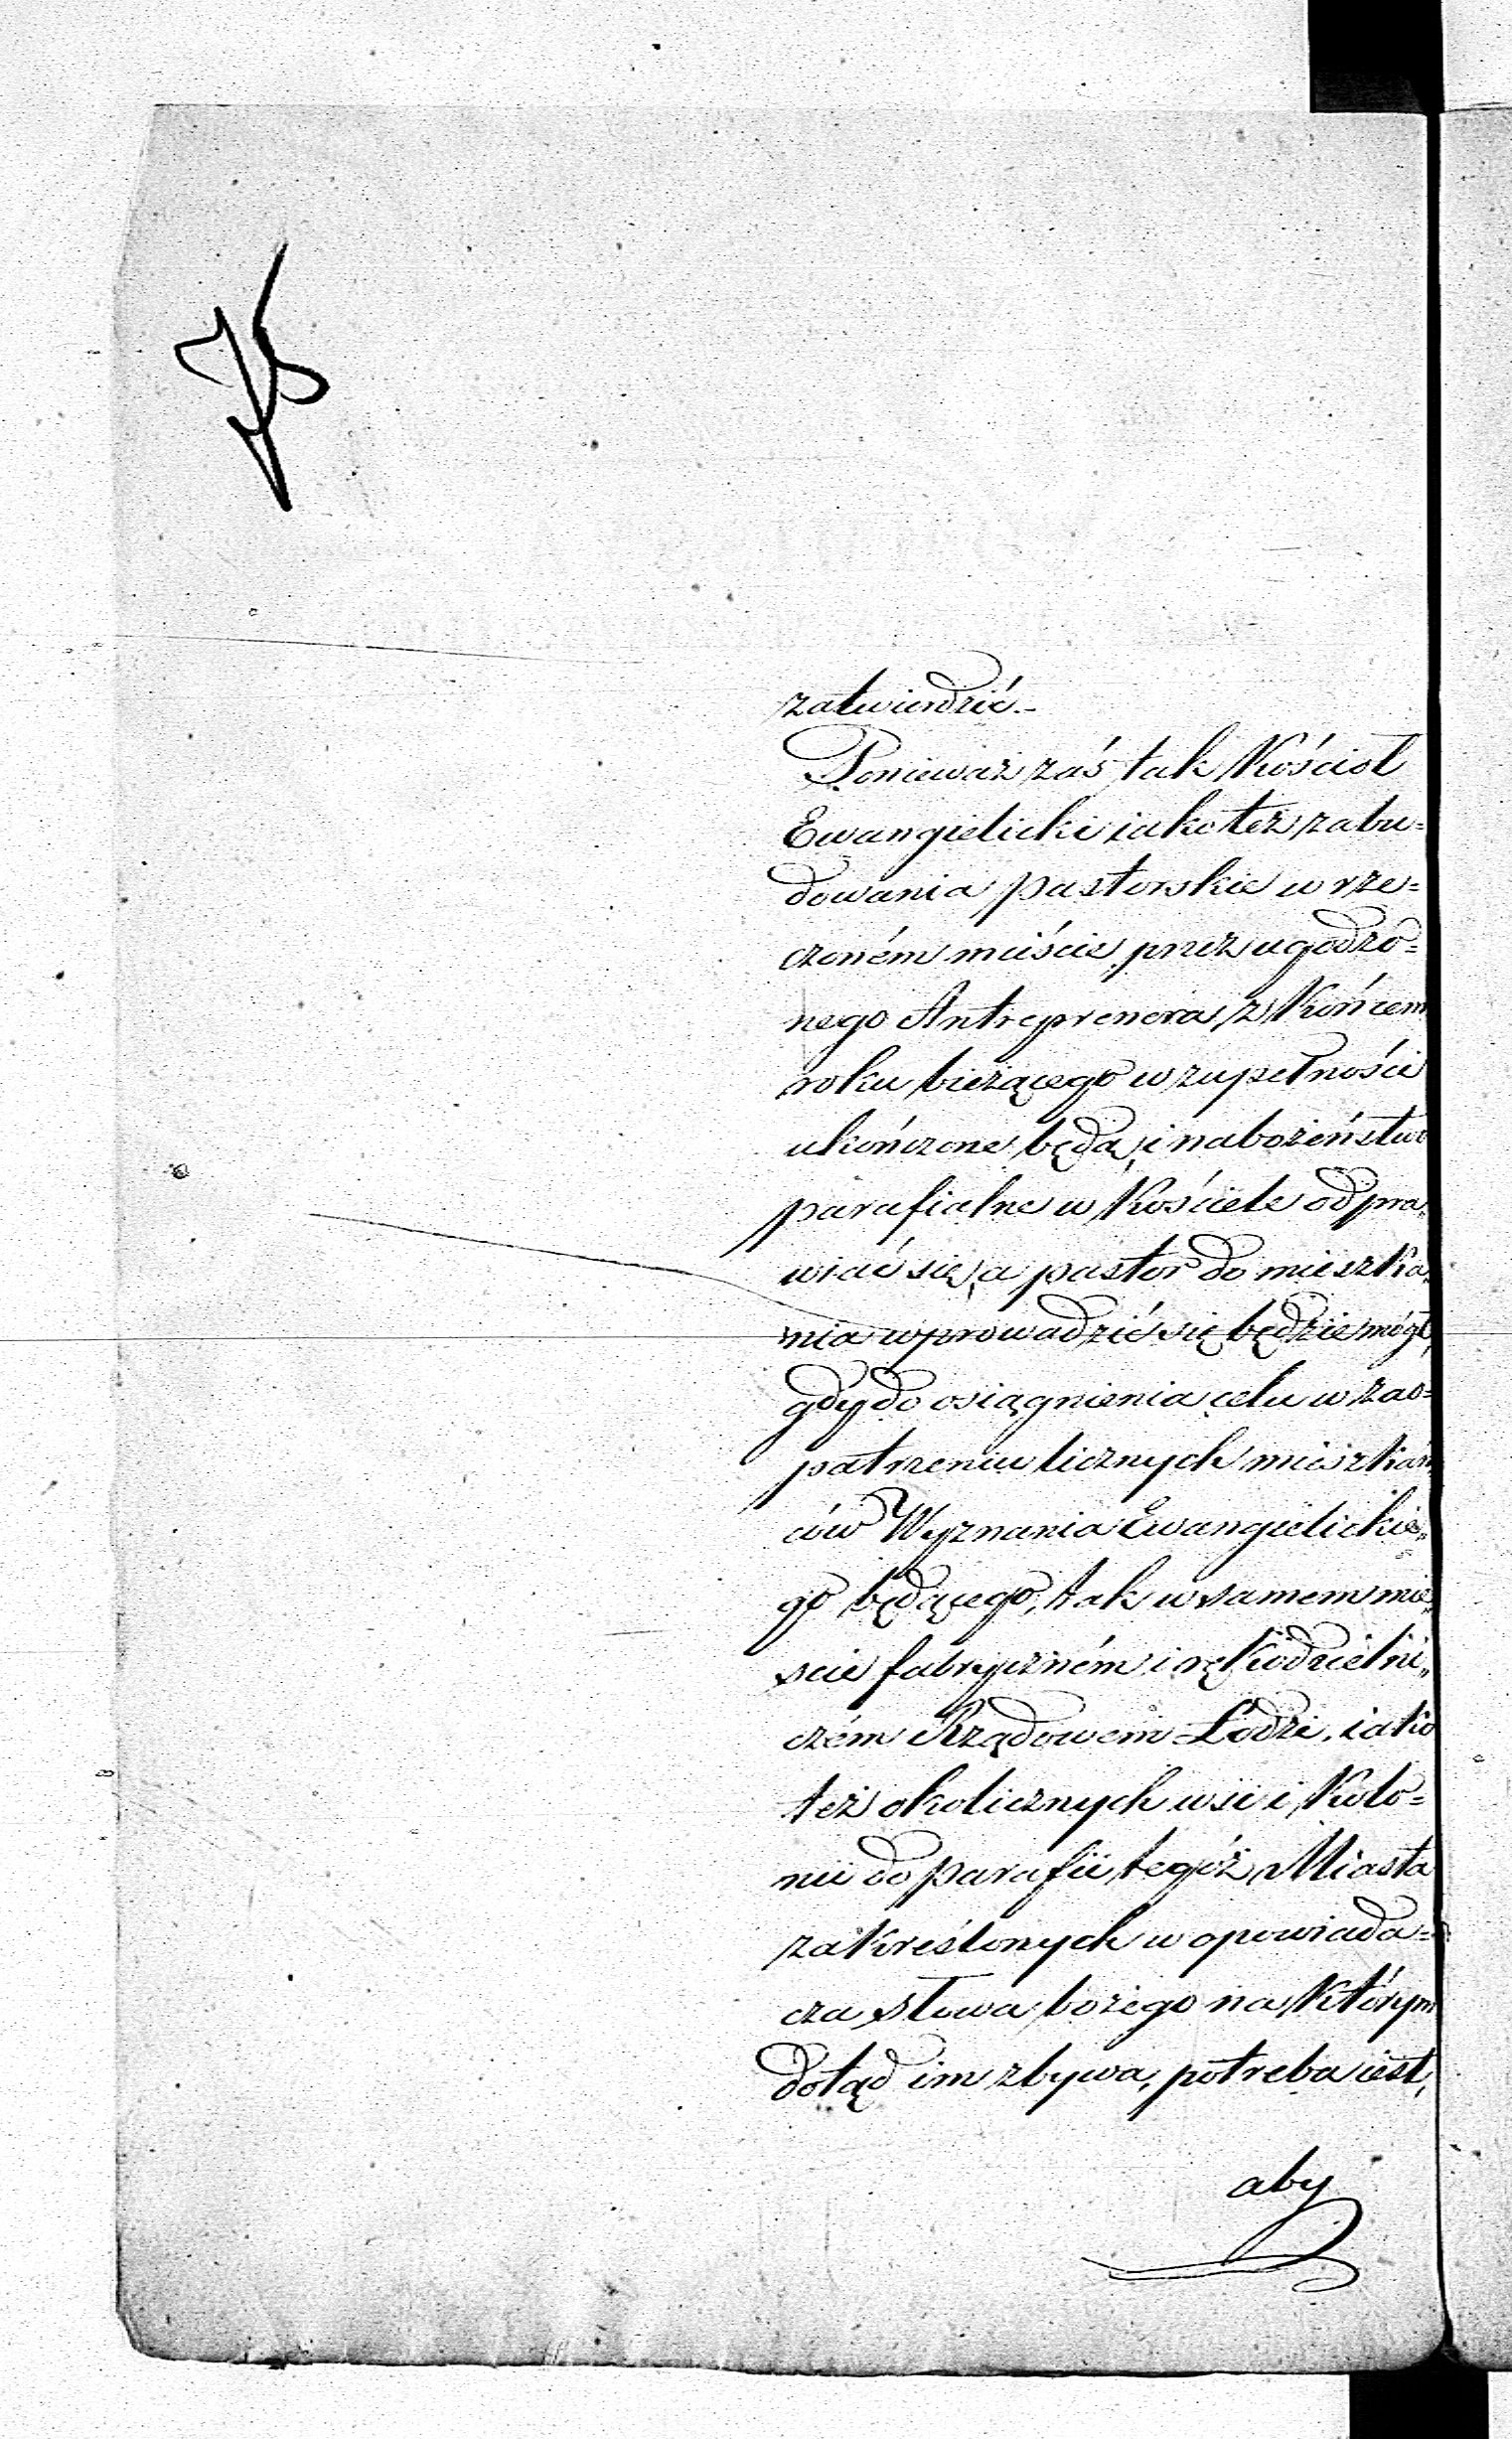 zatwierdzić.-
Ponieważ zaś tak Kościoł
Ewangielicki iako też zabu=
dowania pastorskie w rze=
czoném mieście przez ugodzo=
nego Antreprenera z Końcem
roku bieżącego w zupełności
ukończone będą, i nabożeństwo
parafialne w Kościele odpra„
wiać się, a pastor do mieszka„
nia wprowadzić się będzie mógł,
gdy do osiągnienia celu w zao=
patrzeniu licznych mieszkań
ców Wyznania Ewangielickie„
go będącego, tak w samem mie„
scie fabryczném i rękodzielni„
czém Rządowem Łodzi, iako
też okolicznych wsi i Kolo=
nii do parafii tegóż Miasta
zakreślonych w opowiada=
cza Słowa bożego na którym
dotąd im zbywa, potreba iest,
aby